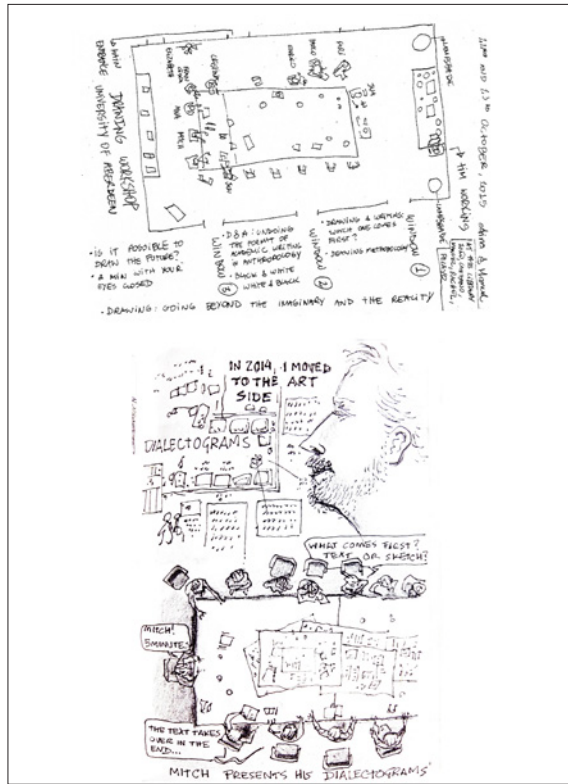 12TH AND 13TH OCTOBER, 2015
LANDSCAPE
TIM WORKING
LANDSCAPE
WINDOW
1
WINDOW
2
WINDOW
3
MAIN
ENTRANCE
DRAWING WORKSHOP
UNIVERSITY OF ABERDEEN
MITCH
• DRAWING & WRITING:
WHICH ONE COMES
FIRST?
• DRAWING METHODOLOGY
• D&A: UNDOING
THE FORMAT OF
ACADEMIC WRITING
IN ANTHROPOLOGY
• BLACK & WHITE
WHITE & BLACK
• IS IT POSSIBLE TO
DRAW THE FUTURE?
• A MAN WITH YOUR
EYES CLOSED
• DRAWING: GOING BEYOND THE IMAGINARY AND THE REALITY
IN 2014, I MOVED
TO THE ART
SIDE
DIALECTOGRAMS
WHAT COMES FIRST?
TEXT OR SKETCH?
MITCH!
5 MINUTE.
THE TEXT TAKES
OVER IN THE
END...
MITCH PRESENTS HIS 'DIALECTOGRAMS'